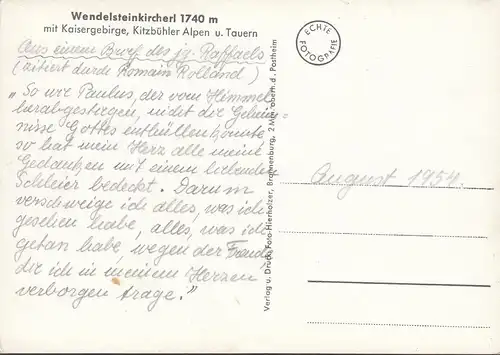 Wendelsteinkircherl 1740 m
mit Kaisergebirge, Kitzbühler Alpen u. Tauern
Aus einem Brief des jg. Raffaels
(zitiert durch Romain Rolland)
"So wie Paulus, der vom Himmel
herabgestiegen, nicht die Geheim-
nisse Gottes enthüllen konnte
so hat mein Herz alle meine
Gedanken mit einem liebenden
Schleier bedeckt. Darum
verschweige ich alles, was ich
gesehen habe, alles, was ich
getan habe wegen der Freude
die ich in meinem Herzen
verborgen trage."
Verlag u. Druck Foto-Hierholzer, Brannenburg, 2 Mi. oberh. d. Postheim
ECHTE
FOTOGRAFIE
August 1954.